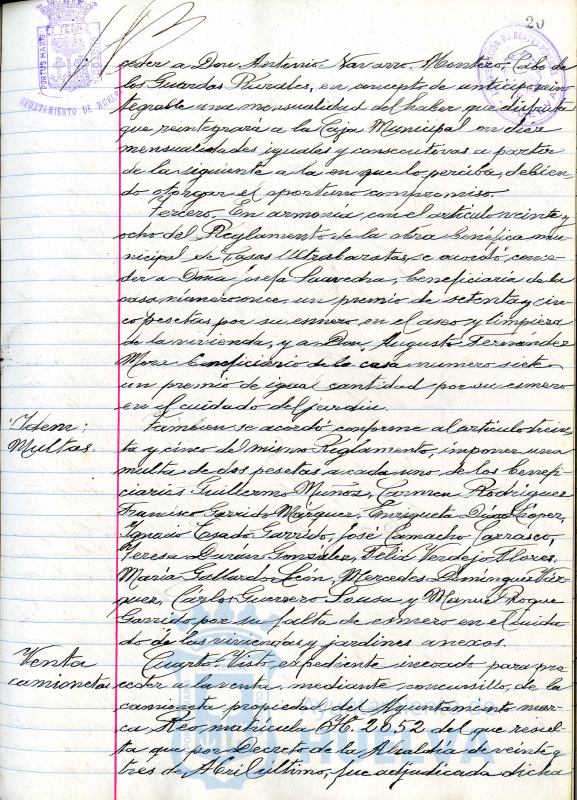 20
PORTUS MARIS
AYUNTAMIENTO DE
ceder a Don Antonio Navarro Montero, Cabo de
los Guardas Rurales, en concepto de anticipo rein
tegrable una mensualidad del haber que disfruta
que reintegrará a la Caja Municipal en diez
mensualidades iguales y consecutivas a partir
de la siguiente a la en que lo perciba, debien-
do otorgar el oportuno compromiso.
Tercero. En armonía con el artículo veinte y
ocho del Reglamento de la obra benéfica mu
nicipal de Casas Ultrabaratas, se acordó conce-
der a Doña Josefa Saavedra, beneficiaria de la
casa número once, un premio de setenta y cin
co pesetas por su esmero en el aseo y limpieza
de la vivienda, y a Don Augusto Fernandez
beneficiario de la casa número siete
un premio de igual cantidad por su esmero
en el cuidado del jardín.
Idem:
Multas.
También se acordó conforme al artículo trein
ta y cinco del mismo Reglamento, imponer una
multa de dos pesetas a cada uno de los benefi
ciarios Guillermo Muñoz, Carmen Rodríguez
Francisco Garrido Márquez, Enriqueta López,
Ignacio Casado Garrido, José Camacho Carrasco,
Teresa Durán González, Felix Verdejo Flores,
María Gallardo León, Mercedes Domínguez Váz-
quez, Carlos Guerrero Sousa y Manuel Roque
Garrido por su falta de esmero en el cuida
do de las viviendas y jardines anexos.
Venta
camioneta
Cuarto. Visto expediente incoado para pro
ceder a la venta, mediante concursillo, de la
camioneta propiedad del Ayuntamiento mar-
ca Reo matrícula H. 2052 del que resul-
ta que por Decreto de la Alcaldía de veinte y
tres de Abril último, fue adjudicada dicha
HUELVA